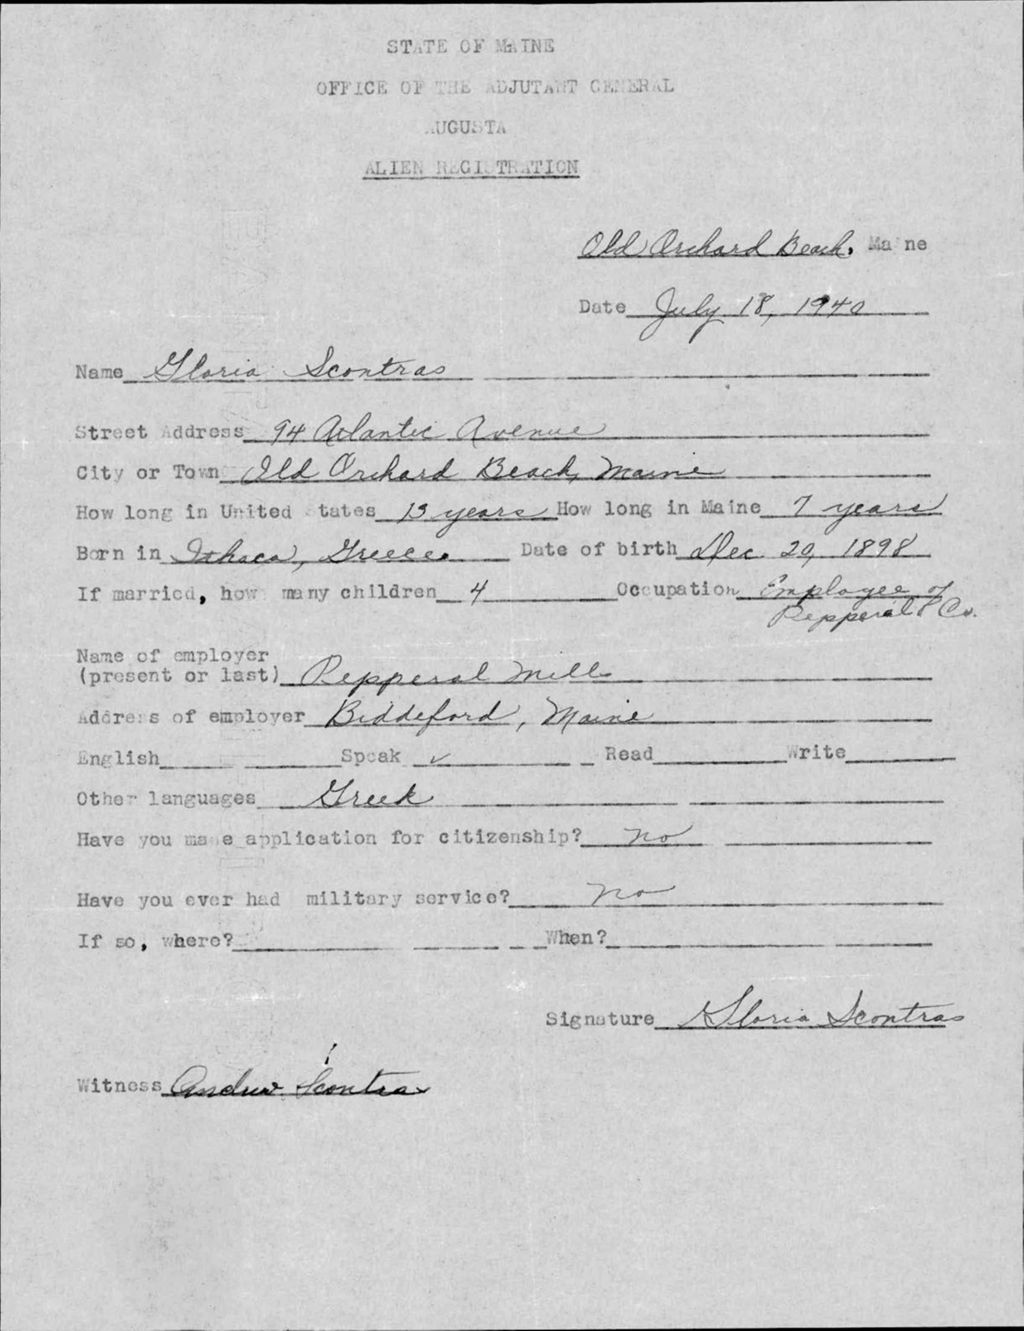 STATE OF MAINE
OFFICE OF THE ADJUTANT GENERAL
AUGUSTA
ALIEN REGISTRATION
Old Orchard Beach, Maine
Date July 18, 1940
Name Gloria Scontras
Street Address 94 Atlantic Avenue
City or Town Old Orchard Beach, Maine
How long in United States 13 years How long in Maine 7 years
Born in Ithaca, Greece Date of birth Dec. 20, 1898
If married, how many children 4 Occupation Employee of
Pepperal & Co.
Name of employer
(present or last) Pepperal Mills
Address of employer Biddeford, Maine
English Speak ✓ Read Write
Other languages Greek
Have you made application for citizenship? no
Have you ever had military service? no
If so, where? When?
Signature Gloria Scontras
Witness Andrew Scontras